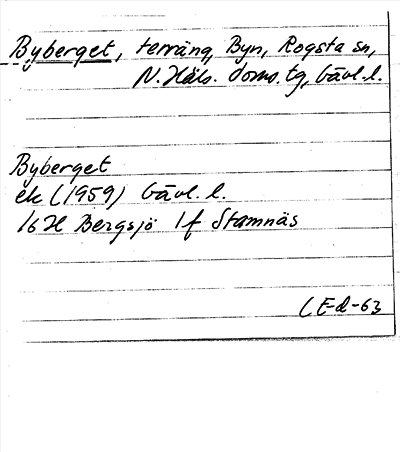 Byberget, terräng, Byn, Rogsta sn,
N. Häls. doms. tg, Gävl. l.
Byberget
ek (1959) Gävl. l.
16H Bergsjö 1f Stamnäs
CE-d-63